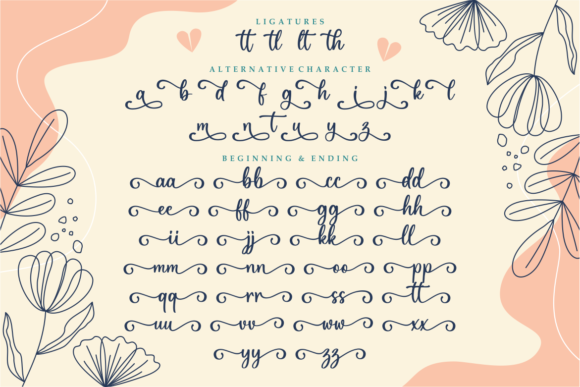 LIGATURES
tt tl lt th
ALTERNATIVE CHARACTER
a b d f g h i j k l
m n t u y z
BEGINNING & ENDING
aa bb cc dd
ee ff gg hh
ii jj kk ll
mm nn oo pp
qq rr ss tt
uu vv ww xx
yy zz